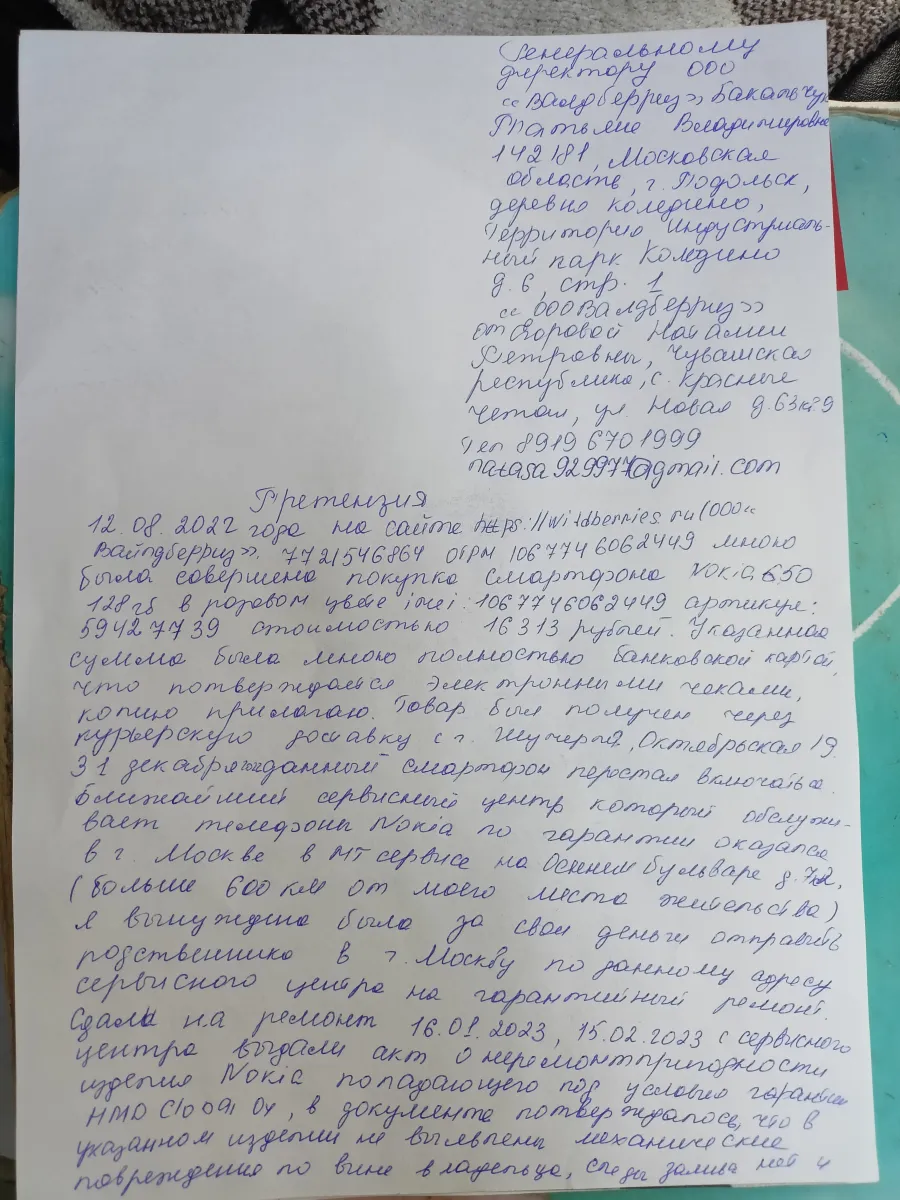 Генеральному
директору ООО
«Валдберриз» Бакальчук
Татьяне Владимировне
142181, Московская
область, г. Подольск,
деревня коледино,
Территория Индустриаль-
ный парк Коледино
д. 6, стр. 1
«ООО Валдберриз»
от Егоровой Наталии
Петровны, Чувашская
республика, с. Красные
Четаи, ул. Новая д. 63 кв 9
Тел 8919 670 1999
natasa929977@gmail.com
Претензия
12.08.2022 года на сайте https://wildberries.ru (ООО «
Вайлдберриз». 7721546864 ОГРН 1067746062449 мною
была совершена покупка смартфона Nokia 650
128гб в розовом цвете imei: 1067746062449 артикул:
59427739 стоимостью 16313 рублей. Указанная
сумма была мною полностью банковской картой,
что потверждается электронными чеками,
копию прилагаю. Товар был получен через
курьерскую доставку с г. Шумерля, Октябрьская 19.
31 декабря данный смартфон перестал включаться.
Ближайший сервисный центр который обслужи-
вает телефоны Nokia по гарантии оказался
в г. Москве в МТ сервисе на Осеннем бульваре
(больше 600 км от моего места жительства)
я вынуждена была за свои деньги отправить
родственника в г. Москву по данному адресу
сервисного центра на гарантийный ремонт.
Сдала на ремонт 16.01.2023, 15.02.2023 с сервисного
центра выдали акт о неремонтпригодности
изделия Nokia попадающего под условие гарантии
HMD, в документе потверждалось, что в
указанном изделии не выявлены механические
повреждения по вине владельца, следы залива нет и